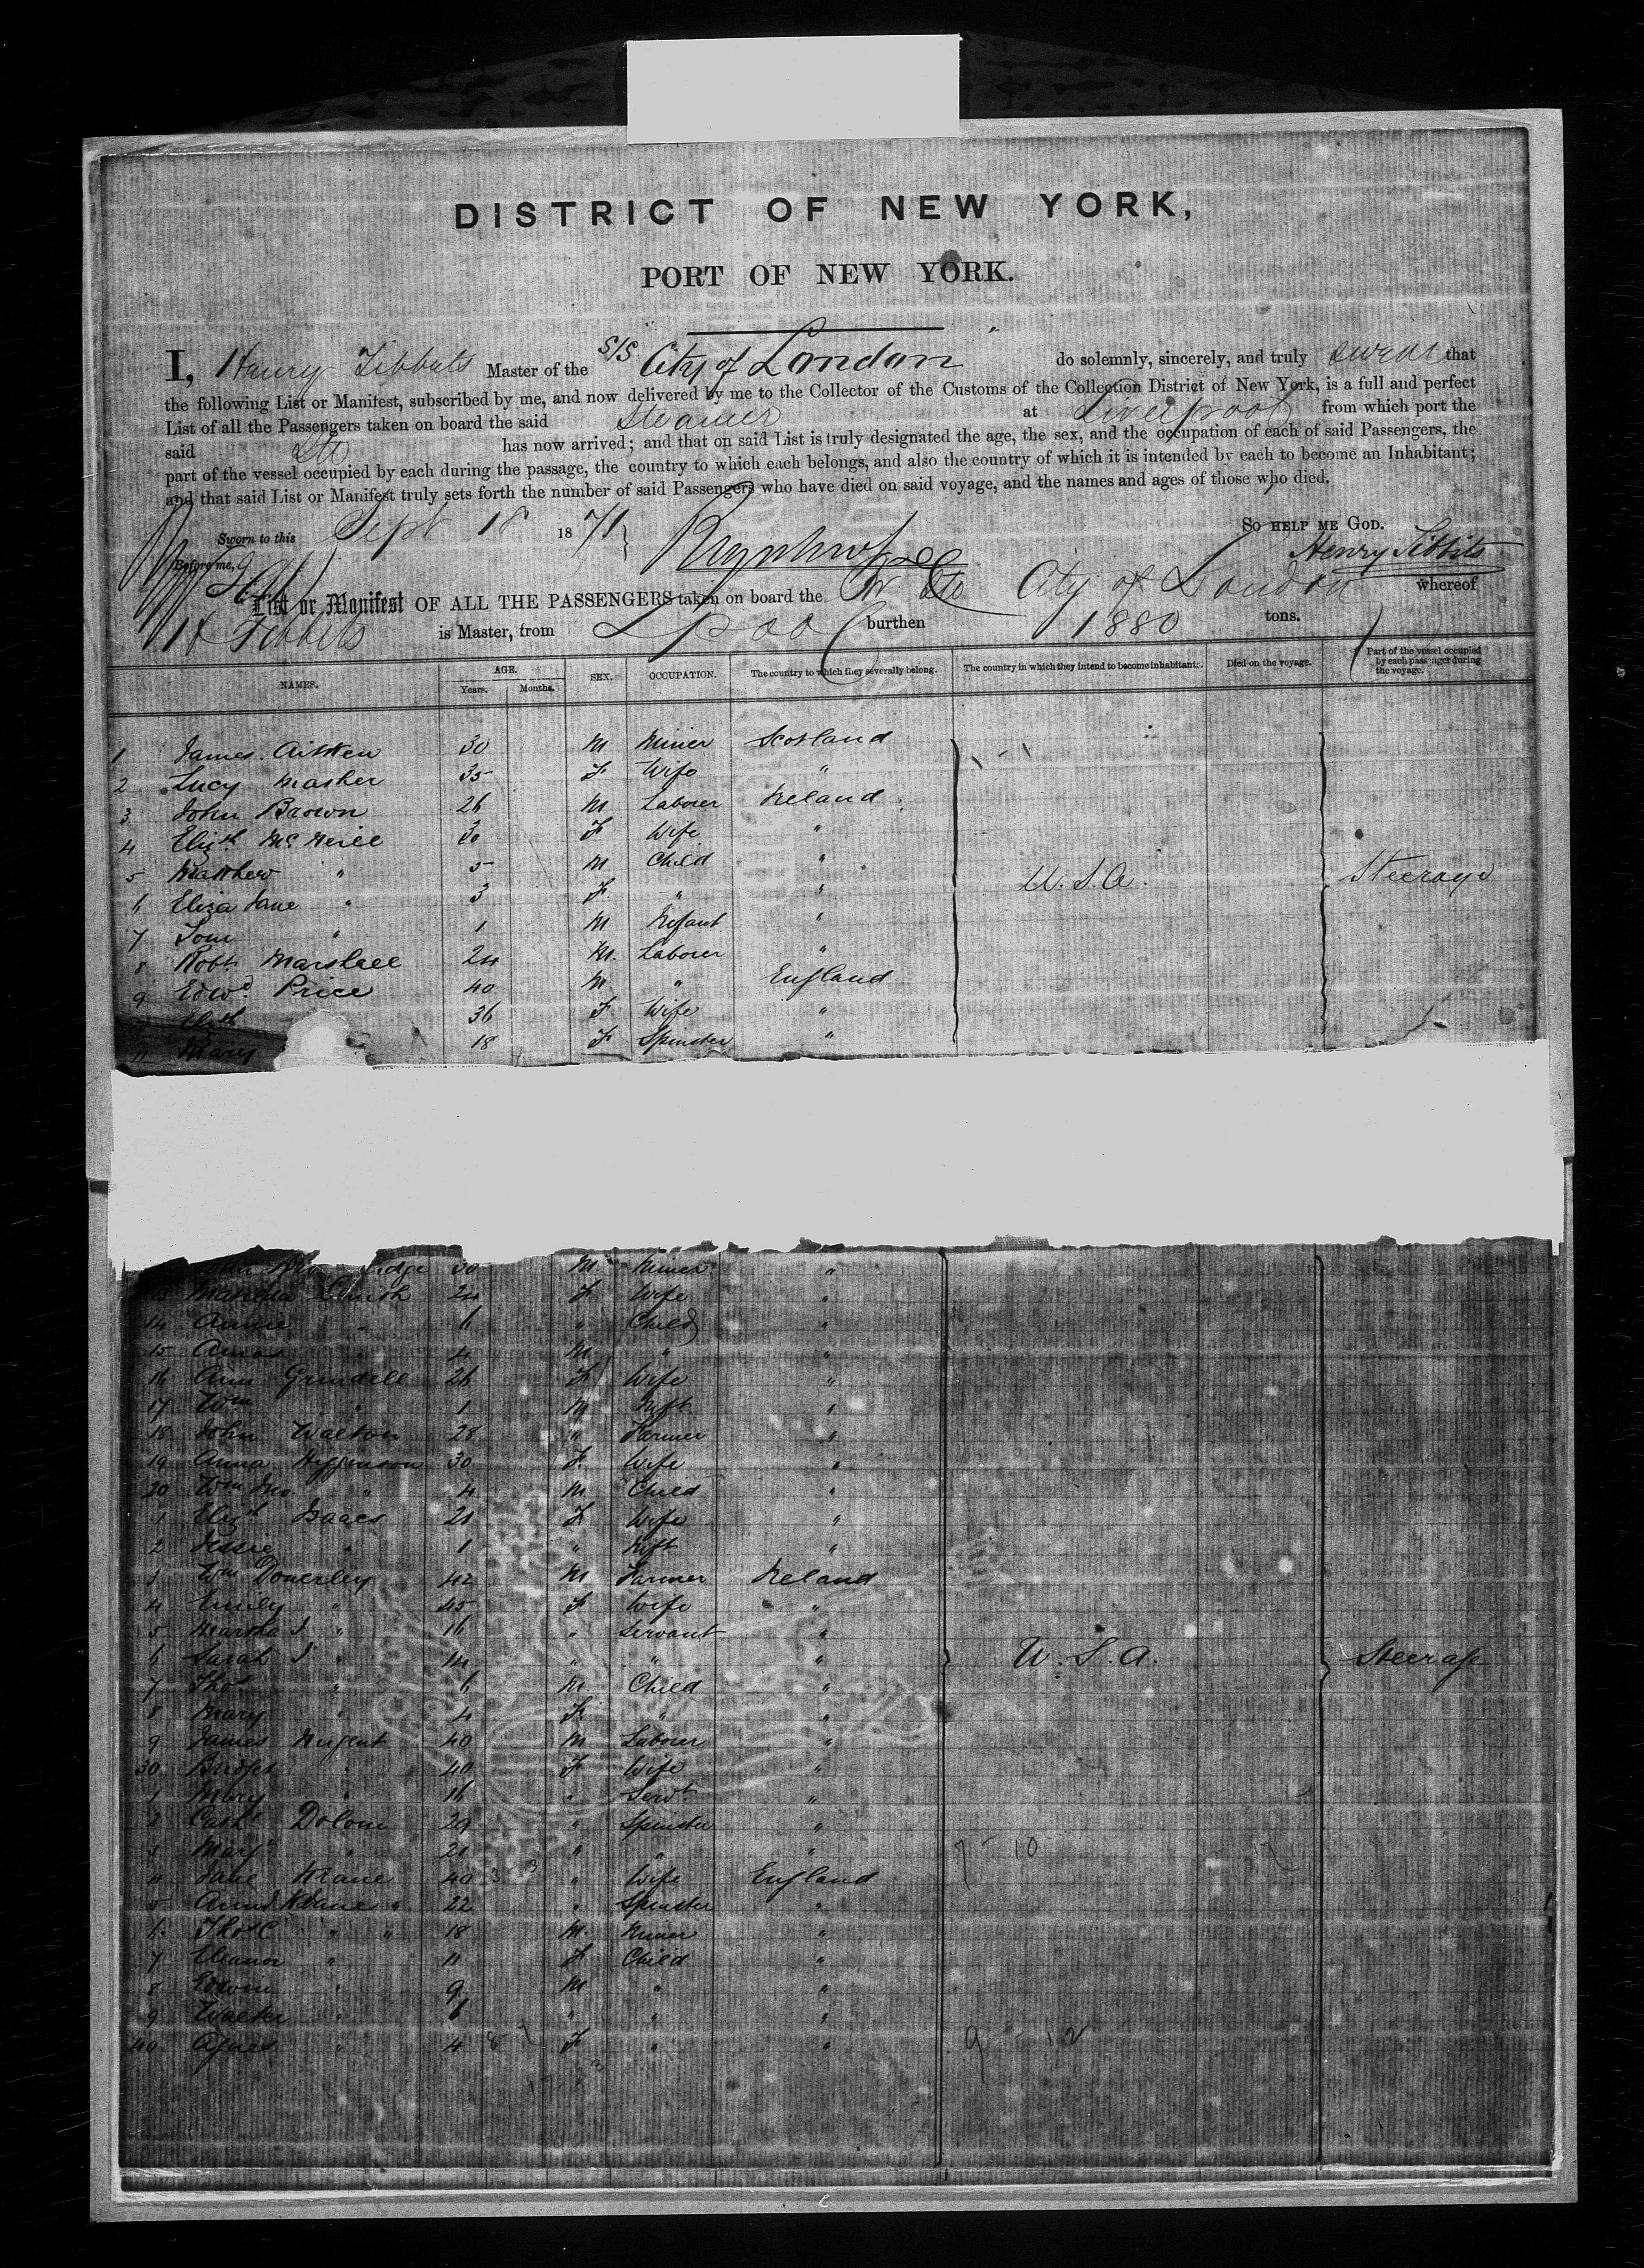 DISTRICT OF NEW YORK,
PORT OF NEW YORK.
I, Henry Tibbits Master of the S/S City of London do solemnly, sincerely, and truly swear that
the following List or Manifest, subscribed by me, and now delivered by me to the Collector of the Customs of the Collection District of New York, is a full and perfect
List of all the Passengers taken on board the said Steamer at Liverpool from which port the
said Str has now arrived; and that on said List is truly designated the age, the sex, and the occupation of each of said Passengers, the
part of the vessel occupied by each during the passage, the country to which each belongs, and also the country of which it is intended by each to become an Inhabitant;
and that said List or Manifest truly sets forth the number of said Passengers who have died on said voyage, and the names and ages of those who died.
Sworn to this Sept 18 1871 SO HELP ME GOD.
Before me, Henry Tibbits
List or Manifest OF ALL THE PASSENGERS taken on board the City of London whereof
H Tibbits is Master, from Lpool burthen 1880 tons.
NAMES. AGE. Years. Months. SEX. OCCUPATION. The country to which they severally belong. The country in which they intend to become inhabitants. Died on the voyage. Part of the vessel occupied by each passenger during the voyage.
1 James Aitken 30 M Miner Scotland
2 Lucy Masher 35 F Wife "
3 John Brown 26 M Laborer Ireland
4 Elizth McNeill 30 F Wife "
5 Matthew " 5 M Child " U.S.A. Steerage
6 Eliza Jane " 3 F " "
7 Tom " 1 M Infant "
8 Robt Marshall 24 M. Laborer "
9 Edwd Price 40 M " England
Elizth 36 F Wife "
11 Mary 18 F Spinster "
John 30 M. Miner "
13 Matilda Smith 24 F Wife "
14 Annie " 6 " Child "
15 Amos " 4 M " "
16 Ann Grindell 26 F Wife "
17 Wm " 1 M Inft "
18 John Walton 28 " Farmer "
19 Anna Higginson 30 F. Wife "
20 Wm Jno. " 4 M Child "
1 Elizth Isaacs 21 F Wife "
2 Jessie " 1 " Inft "
3 Wm Doverley 42 M Farmer Ireland
4 Emily " 45 F Wife "
5 Martha J " 16 " Servant "
6 Sarah J " 14 " " " U.S.A. Steerage
7 Thos " 6 M. Child "
8 Mary " 4 F. " "
9 James Nugent 40 M Laborer "
30 Bridget " 40 F Wife "
1 Mary " 16 " Servt "
2 Cathe Dolom 29 " Spinster "
3 Mary " 21 " " " 7 - 10
4 Jane Krane 40 " Wife England
5 " 22 " Spinster "
6. Thos C " " 18 M. Miner "
7 Eleanor " 11 F Child "
8 Edwin " 9 M " "
9 Walter " 6 " " "
40 Agnes " 4 F " " 9 - 12